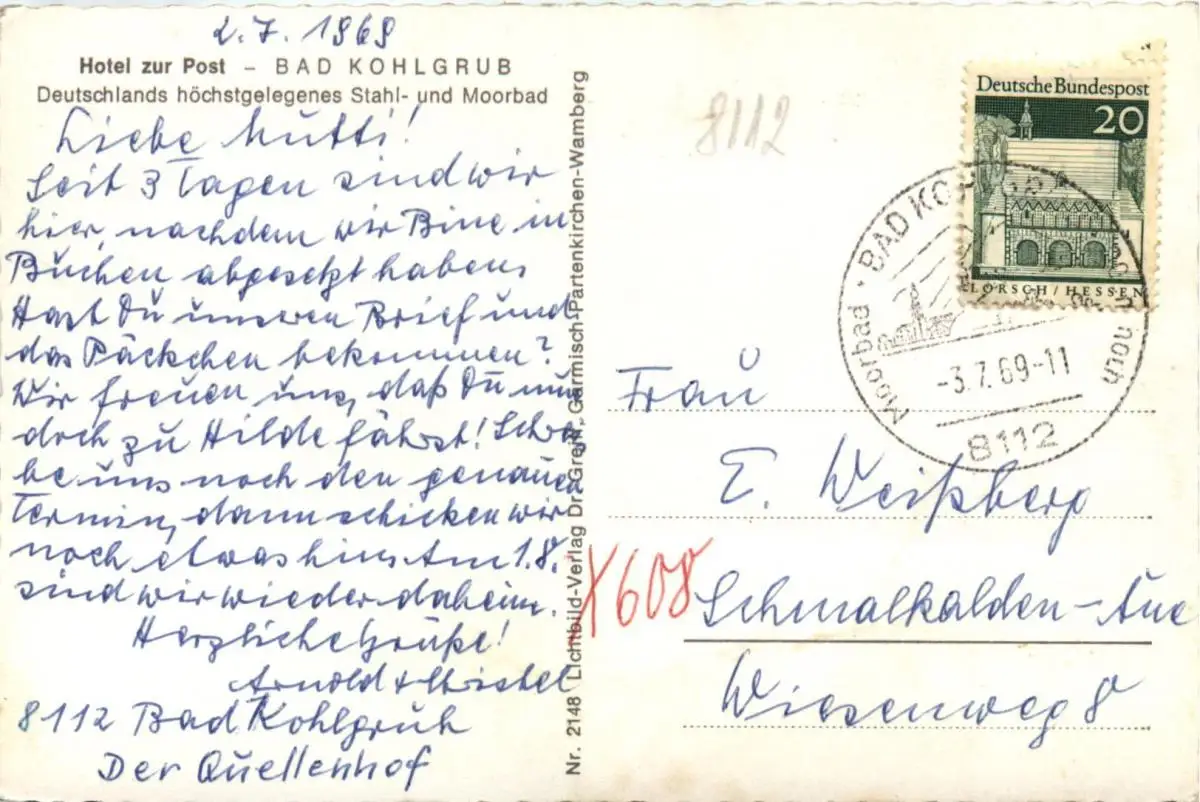 2.7.1969
Hotel zur Post – BAD KOHLGRUB
Deutschlands höchstgelegenes Stahl- und Moorbad
Liebe Mutti!
Seit 3 Tagen sind wir
hier, nachdem wir Bine in
Buchen abgesetzt haben.
Hast Du unseren Brief und
das Päckchen bekommen?
Wir freuen uns, daß Du nun
doch zu Hilde fährst! Schrei
be uns noch den genauen
Termin, dann schicken wir
noch etwas hin. Am 1.8.
sind wir wieder daheim.
Herzliche Grüße!
Arnold + Christel
8112 Bad Kohlgrub
Der Quellenhof
Nr. 2148 Lichtbild-Verlag Dr. Grejt, Garmisch-Partenkirchen-Wamberg
8112
Deutsche Bundespost
20
LORSCH/HESSEN
Moorbad · BAD KO
-3.7.69-11
8112
Frau
E. Weißberg
X608
Schmalkalden-Aue
Wiesenweg 8